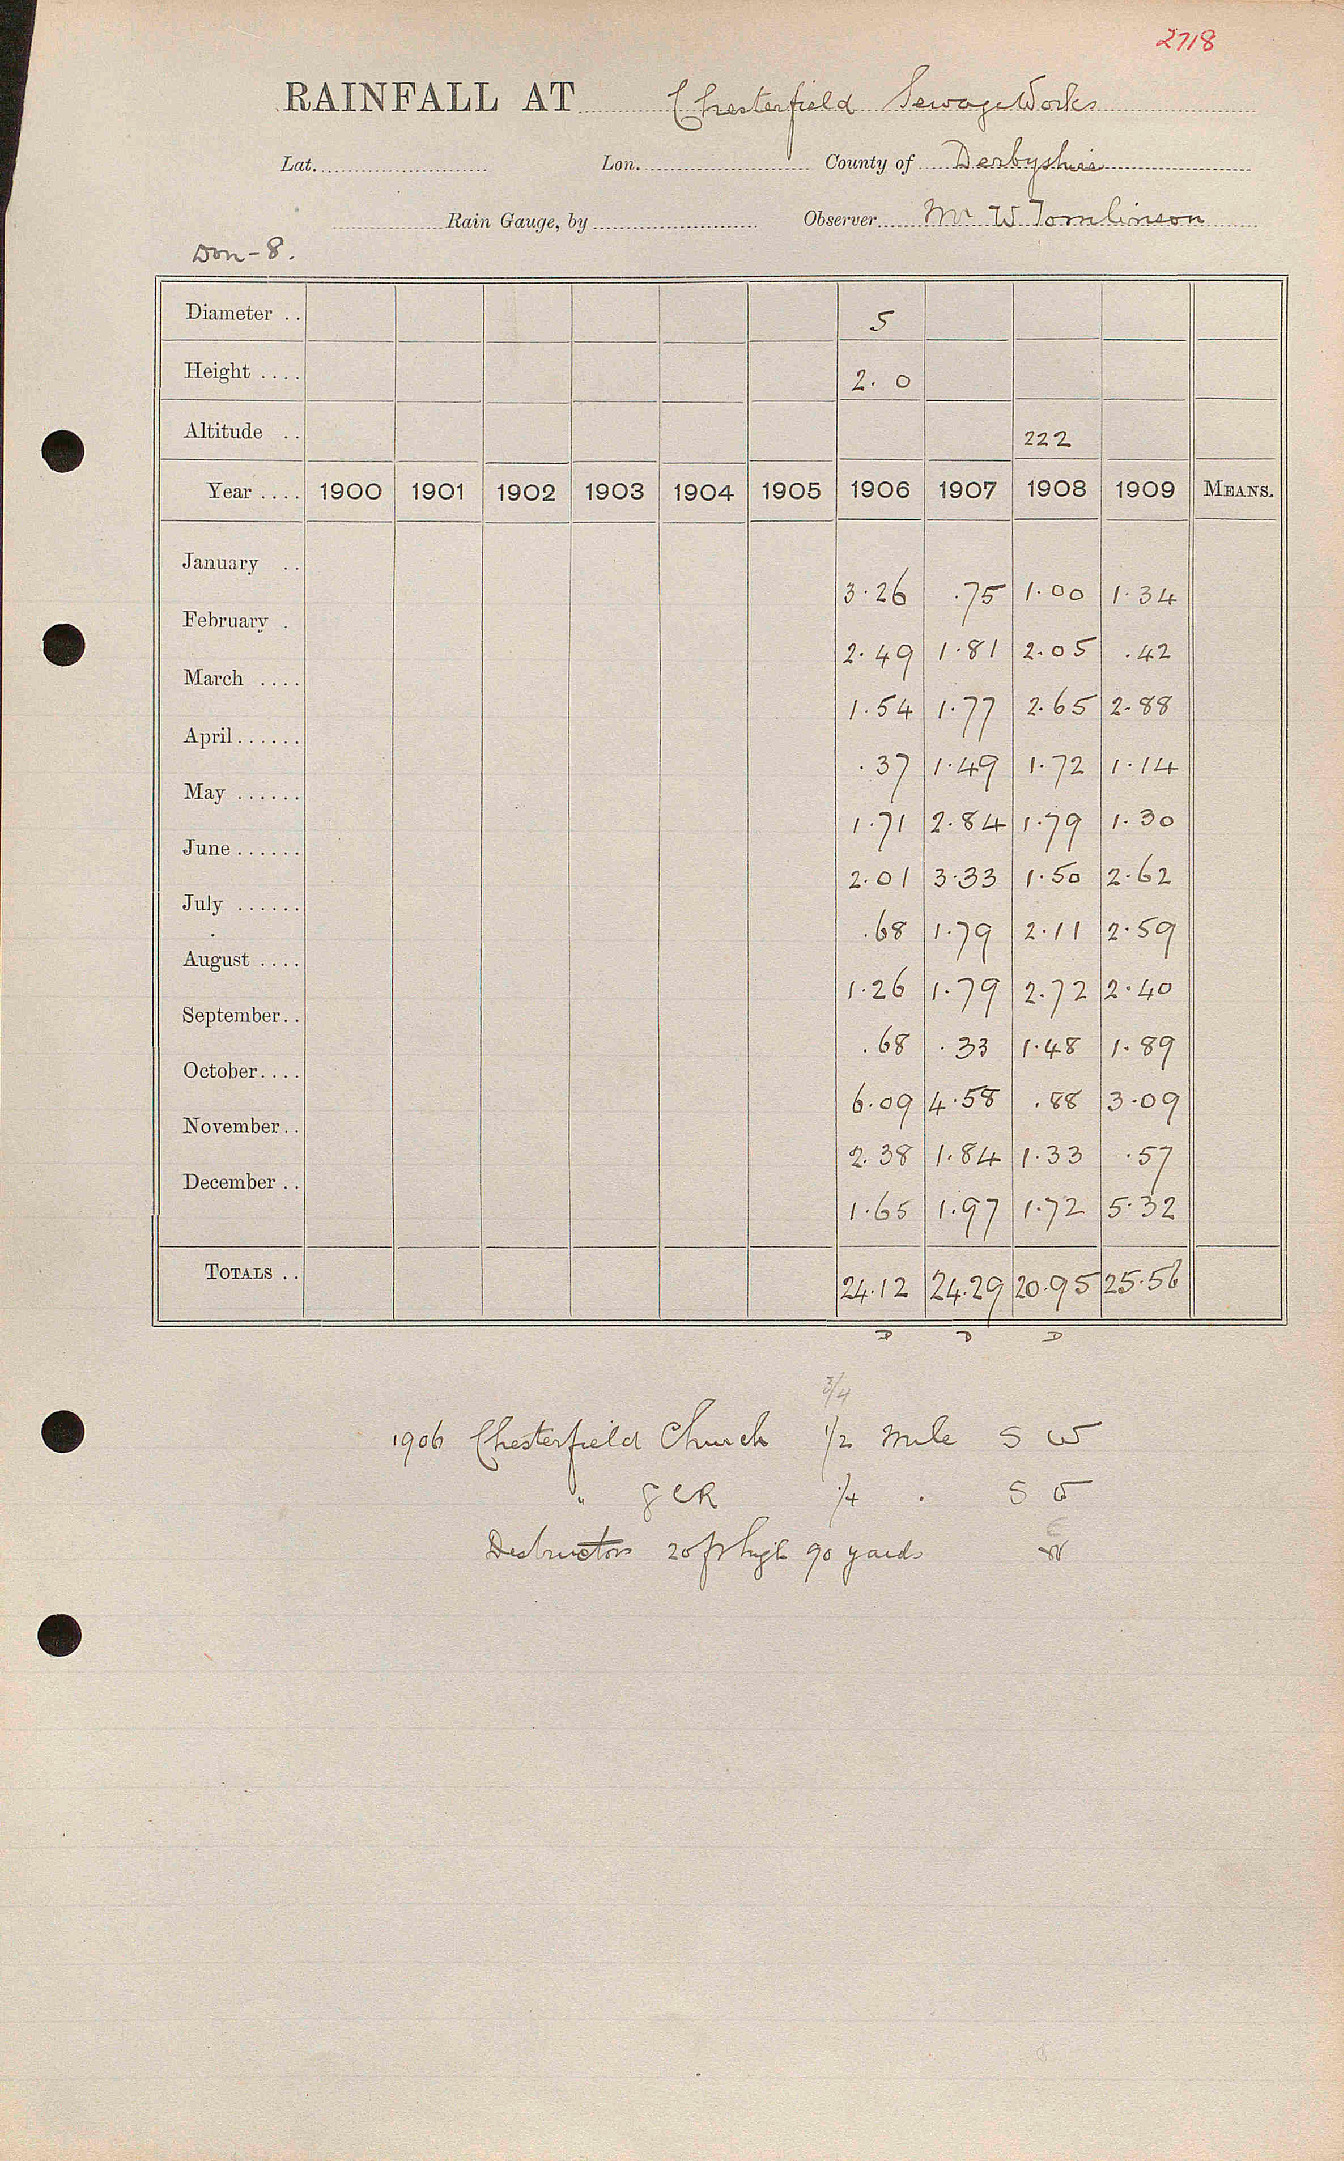 2718
RAINFALL AT Chesterfield Sewage Works
Lat. Lon. County of Derbyshire
Rain Gauge, by Observer Mr W Tomlinson
Don - 8.
Diameter .. 5
Height .... 2. 0
Altitude .. 222
Year .... 1900 1901 1902 1903 1904 1905 1906 1907 1908 1909 MEANS.
January .. 3.26 .75 1.00 1.34
February . 2.49 1.81 2.05 .42
March .... 1.54 1.77 2.65 2.88
April...... .37 1.49 1.72 1.14
May ...... 1.71 2.84 1.79 1.30
June ...... 2.01 3.33 1.50 2.62
July ...... .68 1.79 2.11 2.59
August .... 1.26 1.79 2.72 2.40
September.. .68 .33 1.48 1.89
October.... 6.09 4.58 .88 3.09
November.. 2.38 1.84 1.33 .57
December .. 1.65 1.97 1.72 5.32
TOTALS .. 24.12 24.29 20.95 25.56
D D D
3/4
1906 Chesterfield Church 1/2 mile S W
" G C R 1/4 . S W
Destructors 20 ft high 90 yards